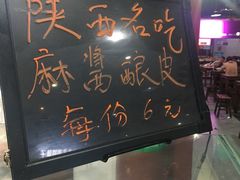 陕西名吃
麻酱酿皮
每份6元